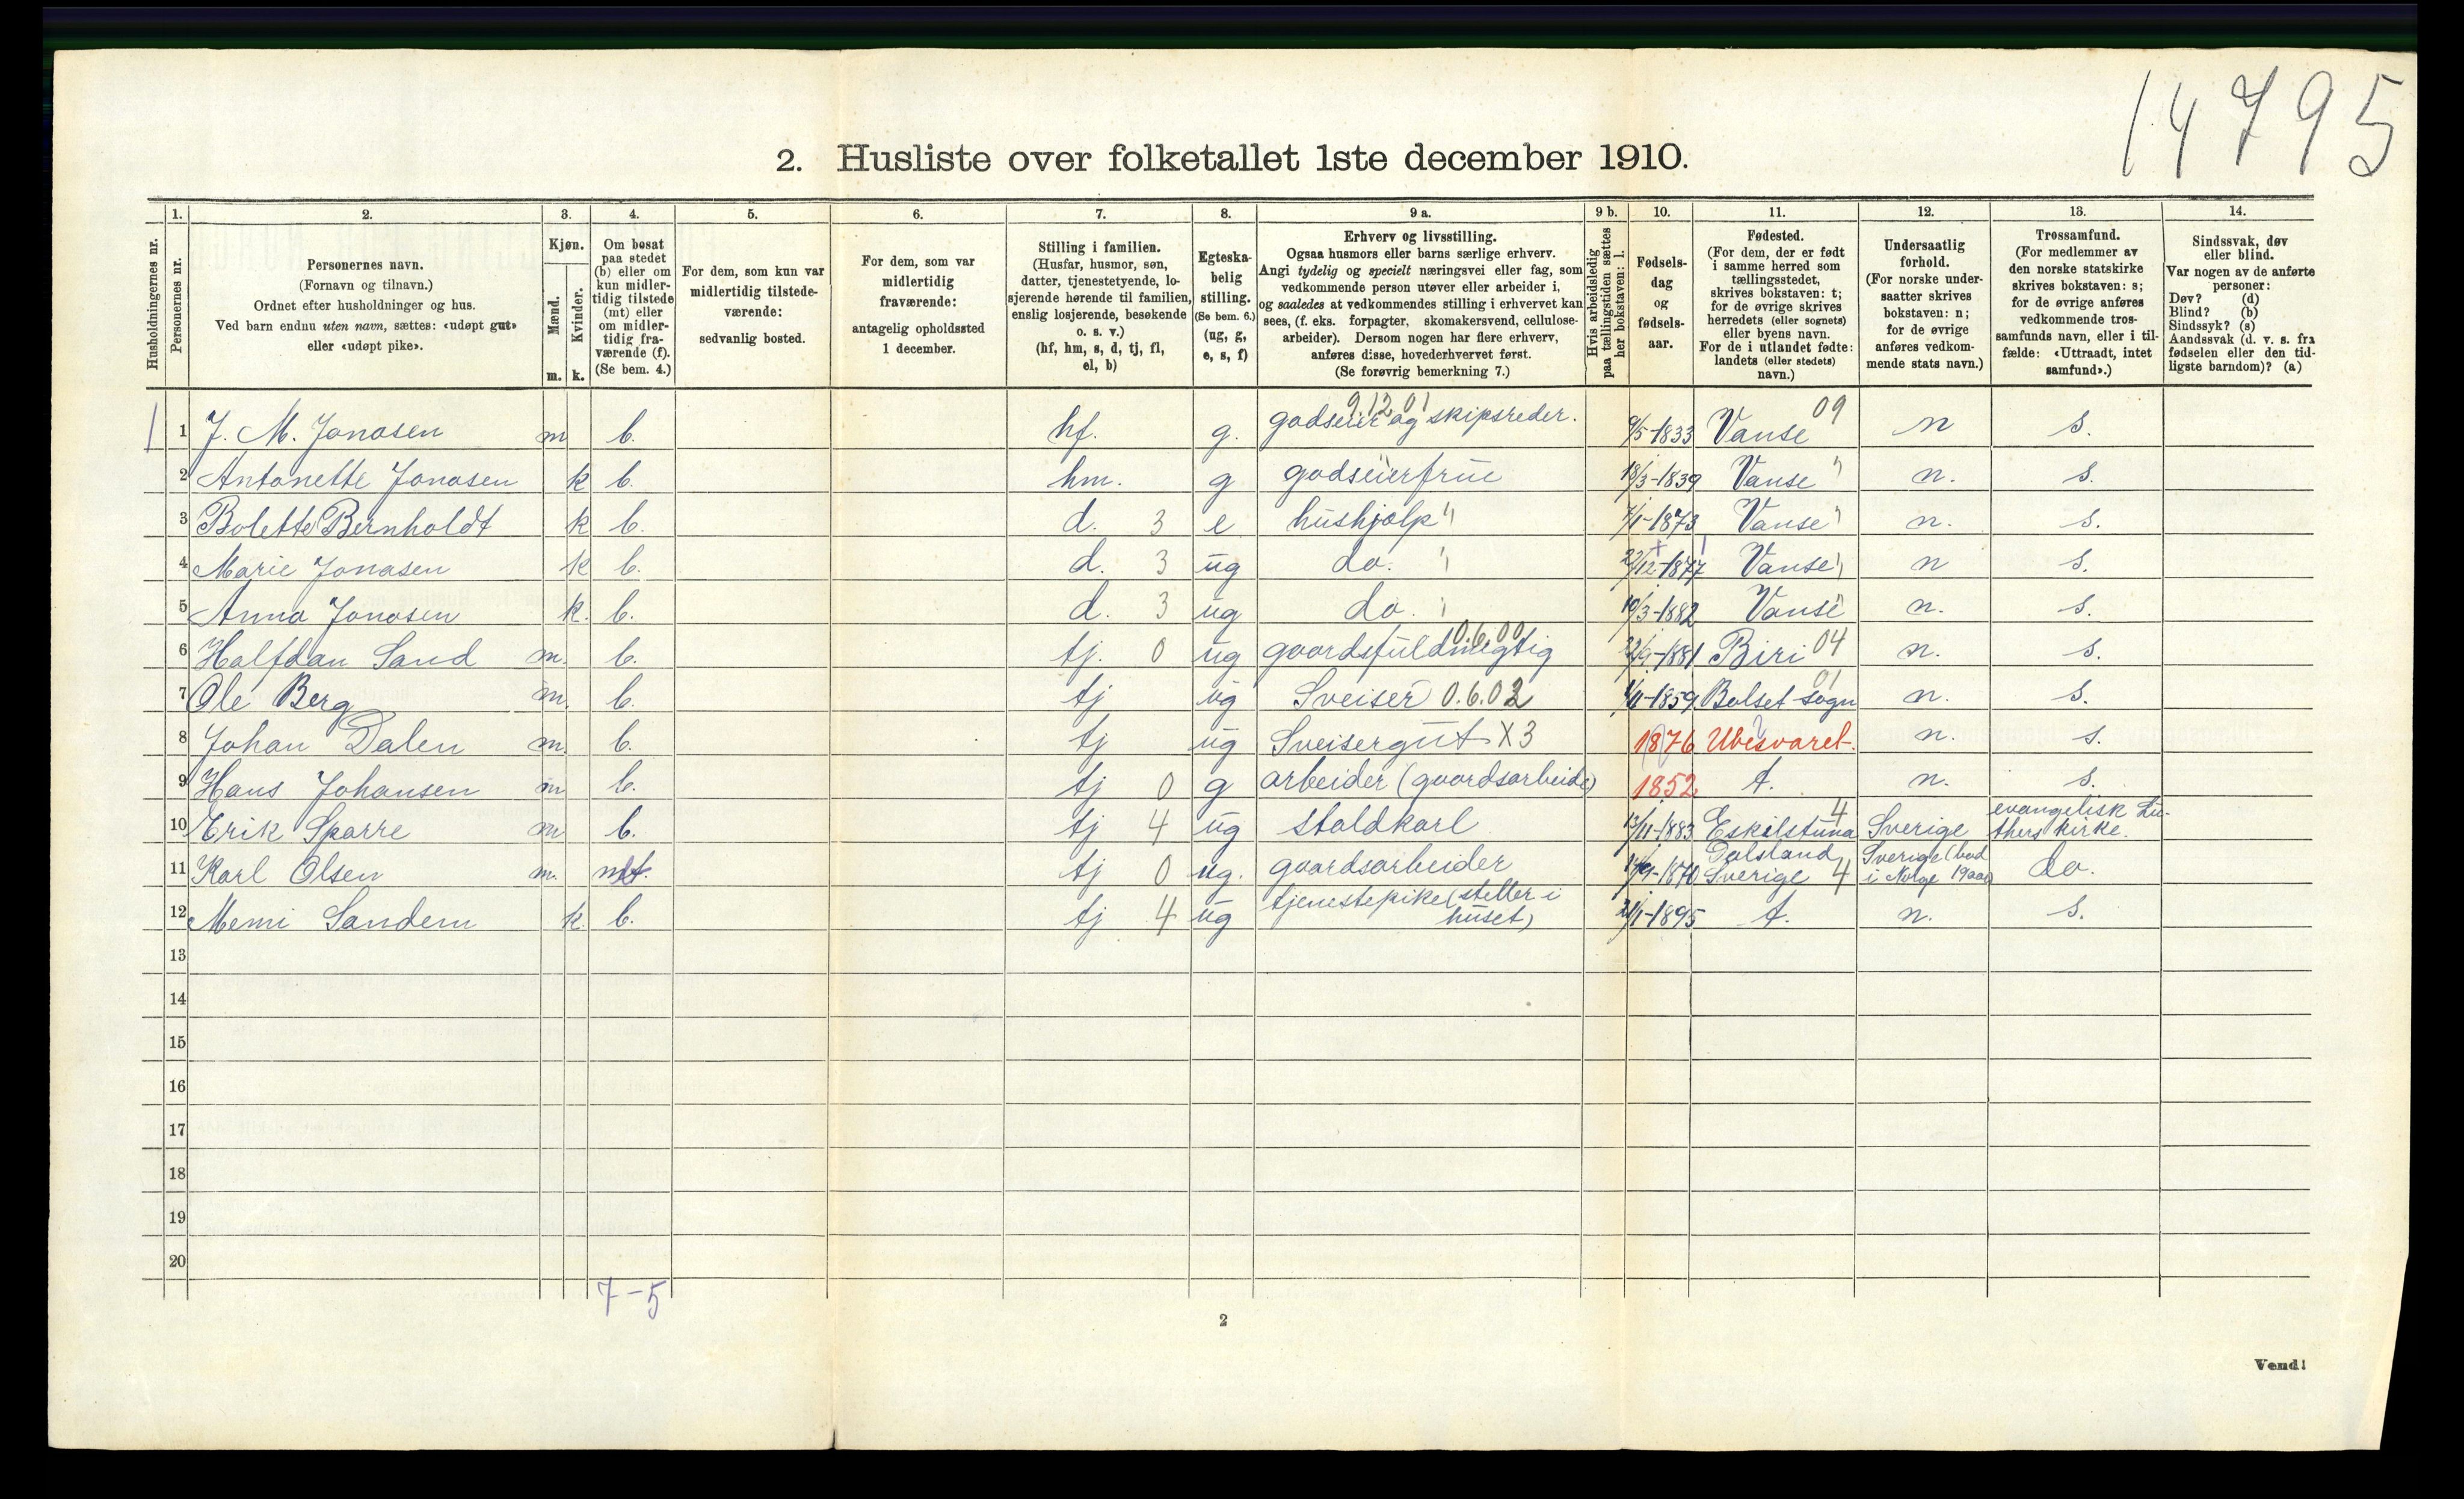 14795
2. Husliste over folketallet 1ste december 1910.
1. 2. 3. 4. 5. 6. 7. 8. 9 a. 9 b. 10. 11. 12. 13. 14.
Husholdningernes nr.
Personernes nr.
Personernes navn.
(Fornavn og tilnavn.)
Ordnet efter husholdninger og hus.
Ved barn endnu uten navn, sættes: «udøpt gut»
eller «udøpt pike».
Kjøn.
Mænd.
Kvinder.
m. k.
Om bosat
paa stedet
(b) eller om
kun midler-
tidig tilstede
(mt) eller
om midler-
tidig fra-
værende (f).
(Se bem. 4.)
For dem, som kun var
midlertidig tilstede-
værende:
sedvanlig bosted.
For dem, som var
midlertidig
fraværende:
antagelig opholdssted
1 december.
Stilling i familien.
(Husfar, husmor, søn,
datter, tjenestetyende, lo-
sjerende hørende til familien,
enslig losjerende, besøkende
o. s. v.)
(hf, hm, s, d, tj, fl,
el, b)
Egteska-
belig
stilling.
(Se bem. 6.)
(ug, g,
e, s, f)
Erhverv og livsstilling.
Ogsaa husmors eller barns særlige erhverv.
Angi tydelig og specielt næringsvei eller fag, som
vedkommende person utøver eller arbeider i,
og saaledes at vedkommendes stilling i erhvervet kan
sees, (f. eks. forpagter, skomakersvend, cellulose-
arbeider). Dersom nogen har flere erhverv,
anføres disse, hovederhvervet først.
(Se forøvrig bemerkning 7.)
Hvis arbeidsledig
paa tællingstiden sættes
her bokstaven: l.
Fødsels-
dag
og
fødsels-
aar.
Fødested.
(For dem, der er født
i samme herred som
tællingsstedet,
skrives bokstaven: t;
for de øvrige skrives
herredets (eller sognets)
eller byens navn.
For de i utlandet fødte:
landets (eller stedets)
navn.)
Undersaatlig
forhold.
(For norske under-
saatter skrives
bokstaven: n;
for de øvrige
anføres vedkom-
mende stats navn.)
Trossamfund.
(For medlemmer av
den norske statskirke
skrives bokstaven: s;
for de øvrige anføres
vedkommende tros-
samfunds navn, eller i til-
fælde: «Uttraadt, intet
samfund».)
Sindssvak, døv
eller blind.
Var nogen av de anførte
personer:
Døv? (d)
Blind? (b)
Sindssyk? (s)
Aandssvak (d. v. s. fra
fødselen eller den tid-
ligste barndom)? (a)
9.12 01 09
1 1 J. M. Jonasen m b. hf. g. godseier og skipsreder. 9/5-1833 Vanse n s.
2 Antonette Jonasen k b. hm. g godseierfrue 18/3-1839 Vanse " n. s.
3 Bolette Bernholdt k b. d. 3 e hushjælp " 7/1-1873 Vanse " n. s.
4 Marie Jonasen k b. d. 3 ug do. " 22/12-1877 Vanse " n s.
5 Anna Jonasen k. b. d. 3 ug do. " 10/3-1882 Vanse n. s.
6 Halfdan Sand m. b. tj. 0 ug gaardsfuldmegtig 0.6.00 22/9-1881 Biri 04 n. s.
7 Ole Berg m. b. tj ug Sveiser 0.6.02 1/11-1859 Bolset sogn 01 n. s.
8 Johan Dalen m. b. tj ug Sveisergut X3 1876 Ubesvaret. n. s.
9 Hans Johansen m b. tj 0 g arbeider (gaardsarbeide) 1852 t. n. s.
10 Erik Sparre m b. tj 4 ug staldkarl 13/11-1883 Eskilstuna 4 Sverige evangelisk Lu-
thers kirke.
11 Karl Olsen m. mt. tj 0 ug. gaardsarbeider 14/9-1870 Dalsland
Sverige 4 Sverige (bod
i Norge 19 aar) do.
12 Memi Sandem k. b. tj 4 ug tjenestepike (steller i
huset) 21/1-1895 t. n. s.
13
14
15
16
17
18
19
20
7-5
2
Vend!